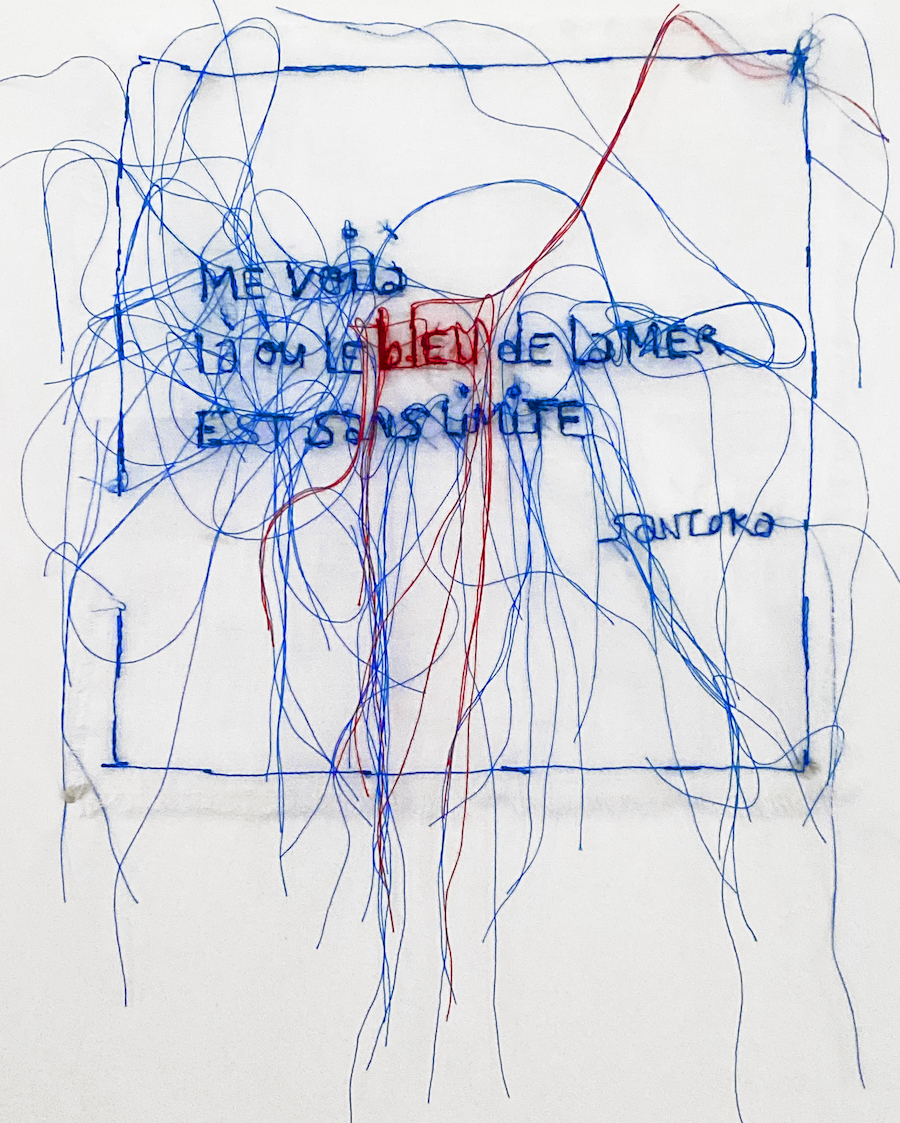 ME VOILà
là où lE blEU dE la MER
EST SaNS liMiTE
SaNToKa